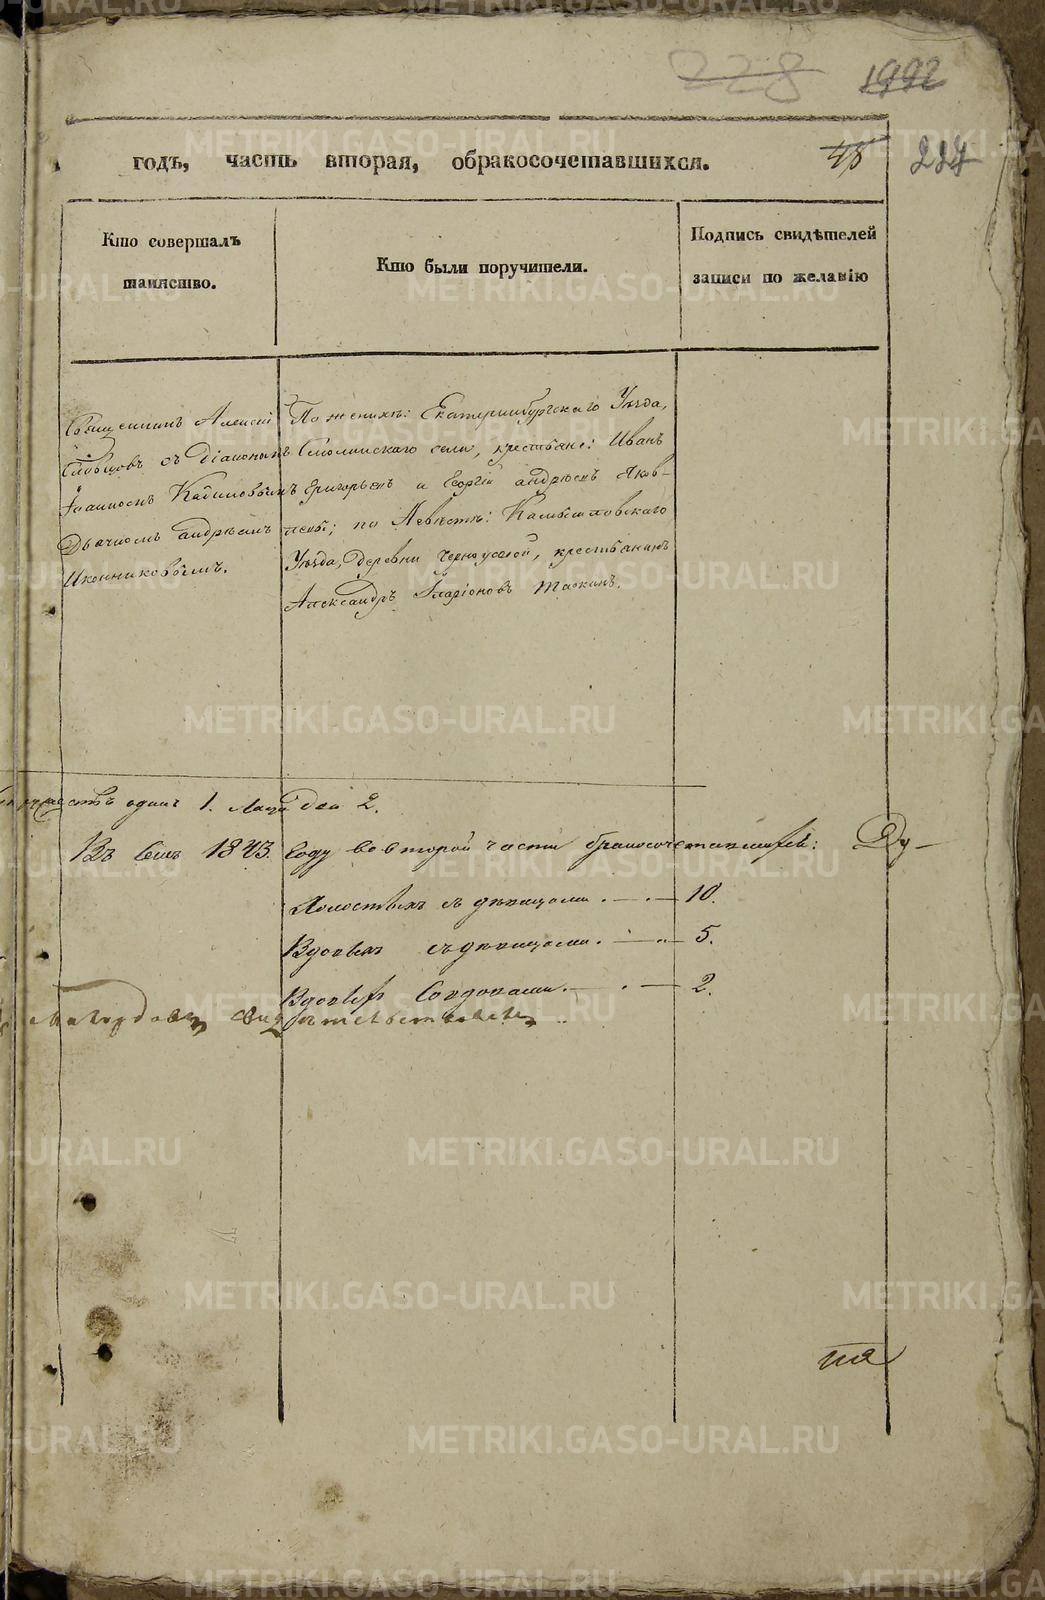 228 1992
годъ, часть вторая, обракосочетавшихся. 48 227
Кто совершалъ
таинство.
Кто были поручители.
Подпись свидѣтелей
записи по желанію
Священникъ Алексій
Слѣпцовъ съ Діакономъ
Іоанномъ
Дьячкомъ Андреемъ
Иконниковымъ.
По женихѣ: Екатеринбургскаго Уѣзда,
Смолинскаго села, крестьяне: Иванъ
Григорьевъ и Георгій Андреевъ Яков-
левы; по Невѣстѣ: Камышловскаго
Уѣзда, деревни Черноусовой, крестьянинъ
Александръ Иларіоновъ Таскинъ.
одинъ 1. Лицъ два 2.
Въ семъ 1843. Году во второй части бракосочетавшихся: Ду-
Холостыхъ съ дѣвицами. — . — 10.
Вдовыхъ съ дѣвицами. — .. — 5.
Вдовыхъ со вдовами. — . — 2.
свидѣтельствовалъ
METRIKI.GASO-URAL.RU